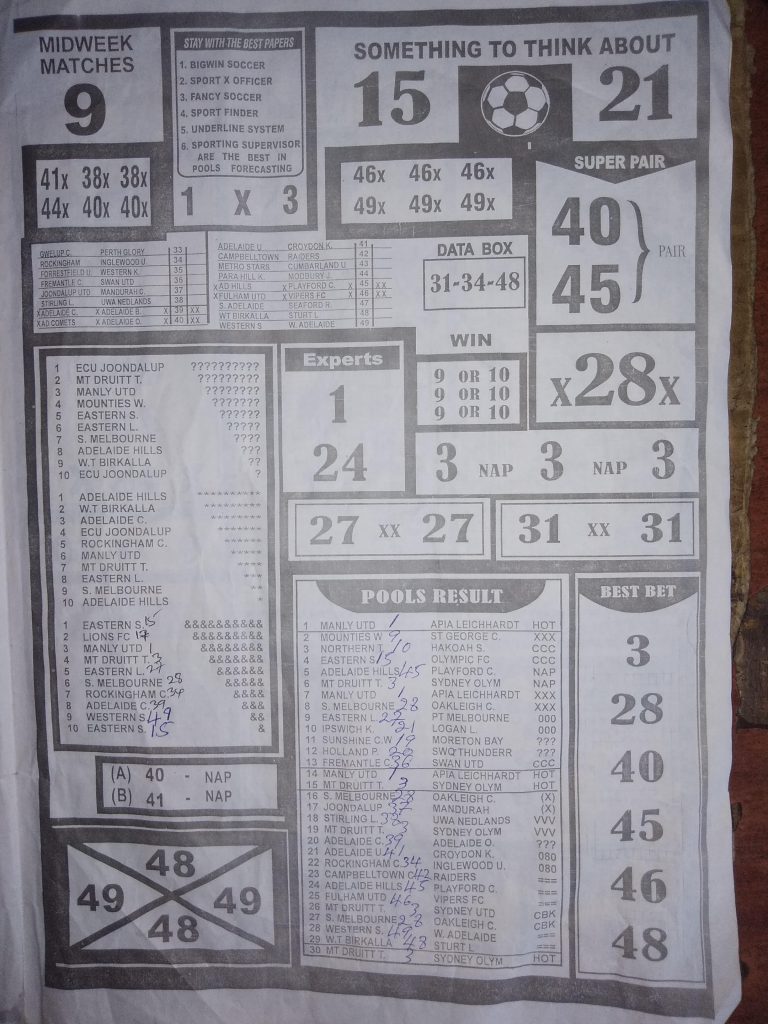 MIDWEEK
MATCHES
9
STAY WITH THE BEST PAPERS
1. BIGWIN SOCCER
2. SPORT X OFFICER
3. FANCY SOCCER
4. SPORT FINDER
5. UNDERLINE SYSTEM
6. SPORTING SUPERVISOR
ARE THE BEST IN
POOLS FORECASTING
1 X 3
SOMETHING TO THINK ABOUT
15 21
41x 38x 38x
44x 40x 40x
46x 46x 46x
49x 49x 49x
SUPER PAIR
40
45
PAIR
GWELUP C. PERTH GLORY 33
ROCKINGHAM INGLEWOOD U. 34
FORRESTFIELD U. WESTERN K. 35
FREMANTLE C. SWAN UTD 36
JOONDALUP UTD MANDURAH C. 37
STIRLING L. UWA NEDLANDS 38
XADELAIDE C. XADELAIDE B. X 39 XX
XAD COMETS XADELAIDE O. X 40 XX
ADELAIDE U. CROYDON K. 41
CAMPBELLTOWN RAIDERS 42
METRO STARS CUMBARLAND U. 43
PARA HILL K. MODBURY J. 44
XAD HILLS XPLAYFORD C. X 45 XX
XFULHAM UTD XVIPERS FC X 46 XX
S. ADELAIDE SEAFORD R. 47
WT BIRKALLA STURT L. 48
WESTERN S. W. ADELAIDE 49
DATA BOX
31-34-48
WIN
9 OR 10
9 OR 10
9 OR 10
X28X
1 ECU JOONDALUP ??????????
2 MT DRUITT T. ?????????
3 MANLY UTD ????????
4 MOUNTIES W. ???????
5 EASTERN S. ??????
6 EASTERN L. ?????
7 S. MELBOURNE ????
8 ADELAIDE HILLS ???
9 W.T BIRKALLA ??
10 ECU JOONDALUP ?
1 ADELAIDE HILLS **********
2 W.T BIRKALLA *********
3 ADELAIDE C. ********
4 ECU JOONDALUP *******
5 ROCKINGHAM C. ******
6 MANLY UTD *****
7 MT DRUITT T. ****
8 EASTERN L. ***
9 S. MELBOURNE **
10 ADELAIDE HILLS *
1 EASTERN S. 15 &&&&&&&&&&
2 LIONS FC 17 &&&&&&&&&
3 MANLY UTD 1 &&&&&&&&
4 MT DRUITT T. 3 &&&&&&&
5 EASTERN L. 27 &&&&&&
6 S. MELBOURNE 28 &&&&&
7 ROCKINGHAM C. 34 &&&&
8 ADELAIDE C. 39 &&&
9 WESTERN S. 49 &&
10 EASTERN S. 15 &
(A) 40 - NAP
(B) 41 - NAP
48
49 49
48
Experts
1
24
3 NAP 3 NAP 3
27 XX 27
31 XX 31
POOLS RESULT
1 MANLY UTD 1 APIA LEICHHARDT HOT
2 MOUNTIES W 9 ST GEORGE C. XXX
3 NORTHERN T. 10 HAKOAH S. CCC
4 EASTERN S 15 OLYMPIC FC CCC
5 ADELAIDE HILLS 45 PLAYFORD C. NAP
6 MT DRUITT T. 3 SYDNEY OLYM NAP
7 MANLY UTD 1 APIA LEICHHARDT XXX
8 S. MELBOURNE 28 OAKLEIGH C. XXX
9 EASTERN L. 27 PT MELBOURNE 000
10 IPSWICH K. 21 LOGAN L. 000
11 SUNSHINE C.W 19 MORETON BAY ???
12 HOLLAND P. 20 SWQ THUNDERR ???
13 FREMANTLE C 36 SWAN UTD CCC
14 MANLY UTD 1 APIA LEICHHARDT HOT
15 MT DRUITT T. 3 SYDNEY OLYM HOT
16 S. MELBOURNE 28 OAKLEIGH C. (X)
17 JOONDALUP 37 MANDURAH (X)
18 STIRLING L. 38 UWA NEDLANDS VVV
19 MT DRUITT T. 3 SYDNEY OLYM VVV
20 ADELAIDE C. 39 ADELAIDE O. ???
21 ADELAIDE U. 41 CROYDON K. 080
22 ROCKINGHAM C. 34 INGLEWOOD U. 080
23 CAMPBELLTOWN C 42 RAIDERS ===
24 ADELAIDE HILLS 45 PLAYFORD C. ===
25 FULHAM UTD 46 VIPERS FC ===
26 MT DRUITT T. 3 SYDNEY UTD CBK
27 S. MELBOURNE 28 OAKLEIGH C. CBK
28 WESTERN S. 49 W. ADELAIDE ===
29 W.T BIRKALLA 48 STURT L ===
30 MT DRUITT T. 3 SYDNEY OLYM HOT
BEST BET
3
28
40
45
46
48